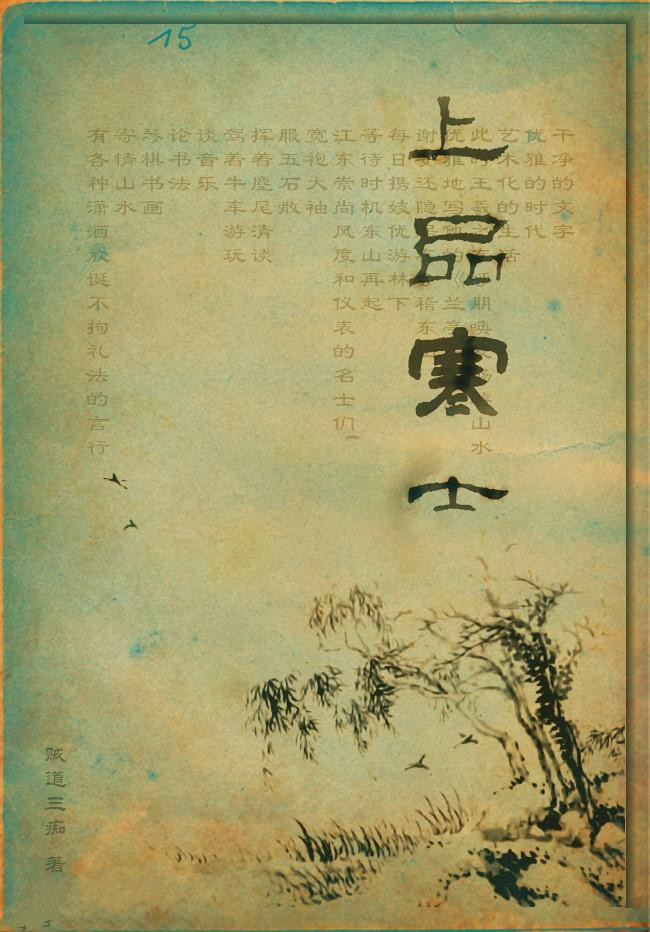 15
上品寒士
干净的文字
优雅的时代
艺术化的生活
此王羲之朋唤山水
优雅地写他的《兰亭
谢安还隐稽东
每日携妓优游林下
等待时机东山再起
江东崇尚风度和仪表的名士们
宽袍大袖
服五石散
挥着麈尾清谈
驾着牛车游玩
谈音乐
论书法
琴棋书画
寄情山水
有各种潇洒放诞不拘礼法的言行
贼道三痴 著